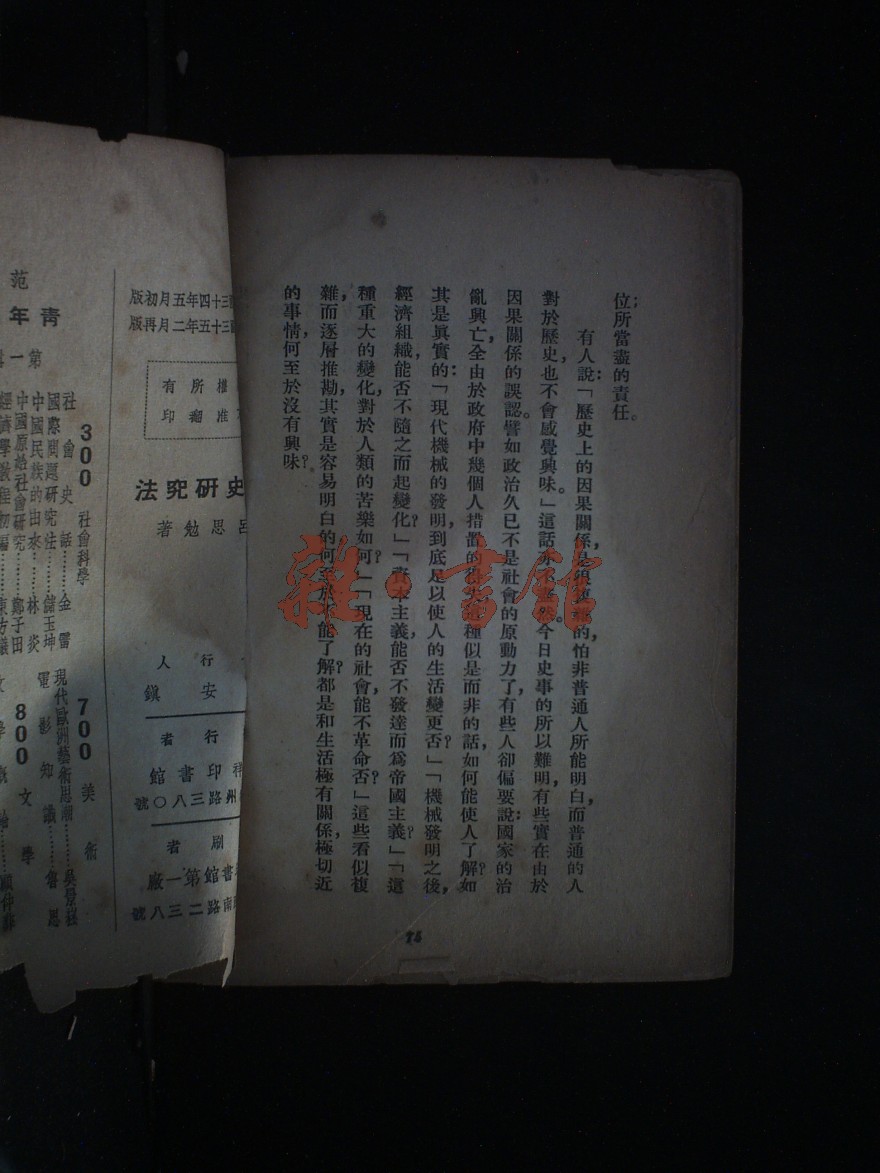 位所當盡的責任。
有人說：「歷史上的因果關係，是很複雜的，怕非普通人所能明白，而普通的人
對於歷史，也不會感覺興味。」這話亦不盡然。今日史事的所以難明，有些實在由於
因果關係的誤認。譬如政治久已不是社會的原動力了，有些人卻偏要說：國家的治
亂興亡，全由於政府中幾個人措置的得失。這種似是而非的話，如何能使人了解？如
其是真實的：「現代機械的發明，到底足以使人的生活變更否？」「機械發明之後，
經濟組織，能否不隨之而起變化？」「資本主義，能否不發達而爲帝國主義？」「這
種重大的變化，對於人類的苦樂如何？」「現在的社會，能不革命否？」這些看似複
雜，而逐層推勘，其實是容易明白的，何至於不能了解？都是和生活極有關係，極切近
的事情，何至於沒有興味？
75
三十四年五月初版
三十五年二月再版
權所有
准翻印
史研究法
呂思勉著
行人
安鎮
行者
祥印書館
州路三八〇號
刷者
書館第一廠
南路二三八號
范
青年
第一
300 社會科學
社會史話………金雷
國際問題研究法…儲玉坤
中國民族的由來…林炎
中國原始社會研究…鄭子田
經濟學教程初編
700 美術
現代歐洲藝術思潮
電影知識………魯思
800 文學
雜·書館